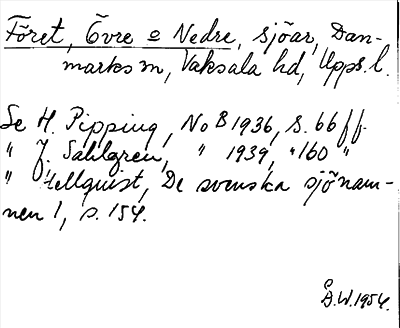 Föret, Övre o Nedre, sjöar, Dan-
marks sn, Vaksala hd, Upps. l.
Se H. Pipping, NoB 1936, s. 66 ff.
" J. Sahlgren, " 1939, " 160 "
" Hellquist, De svenska sjönam-
nen 1, s. 154.
B.W. 1954.